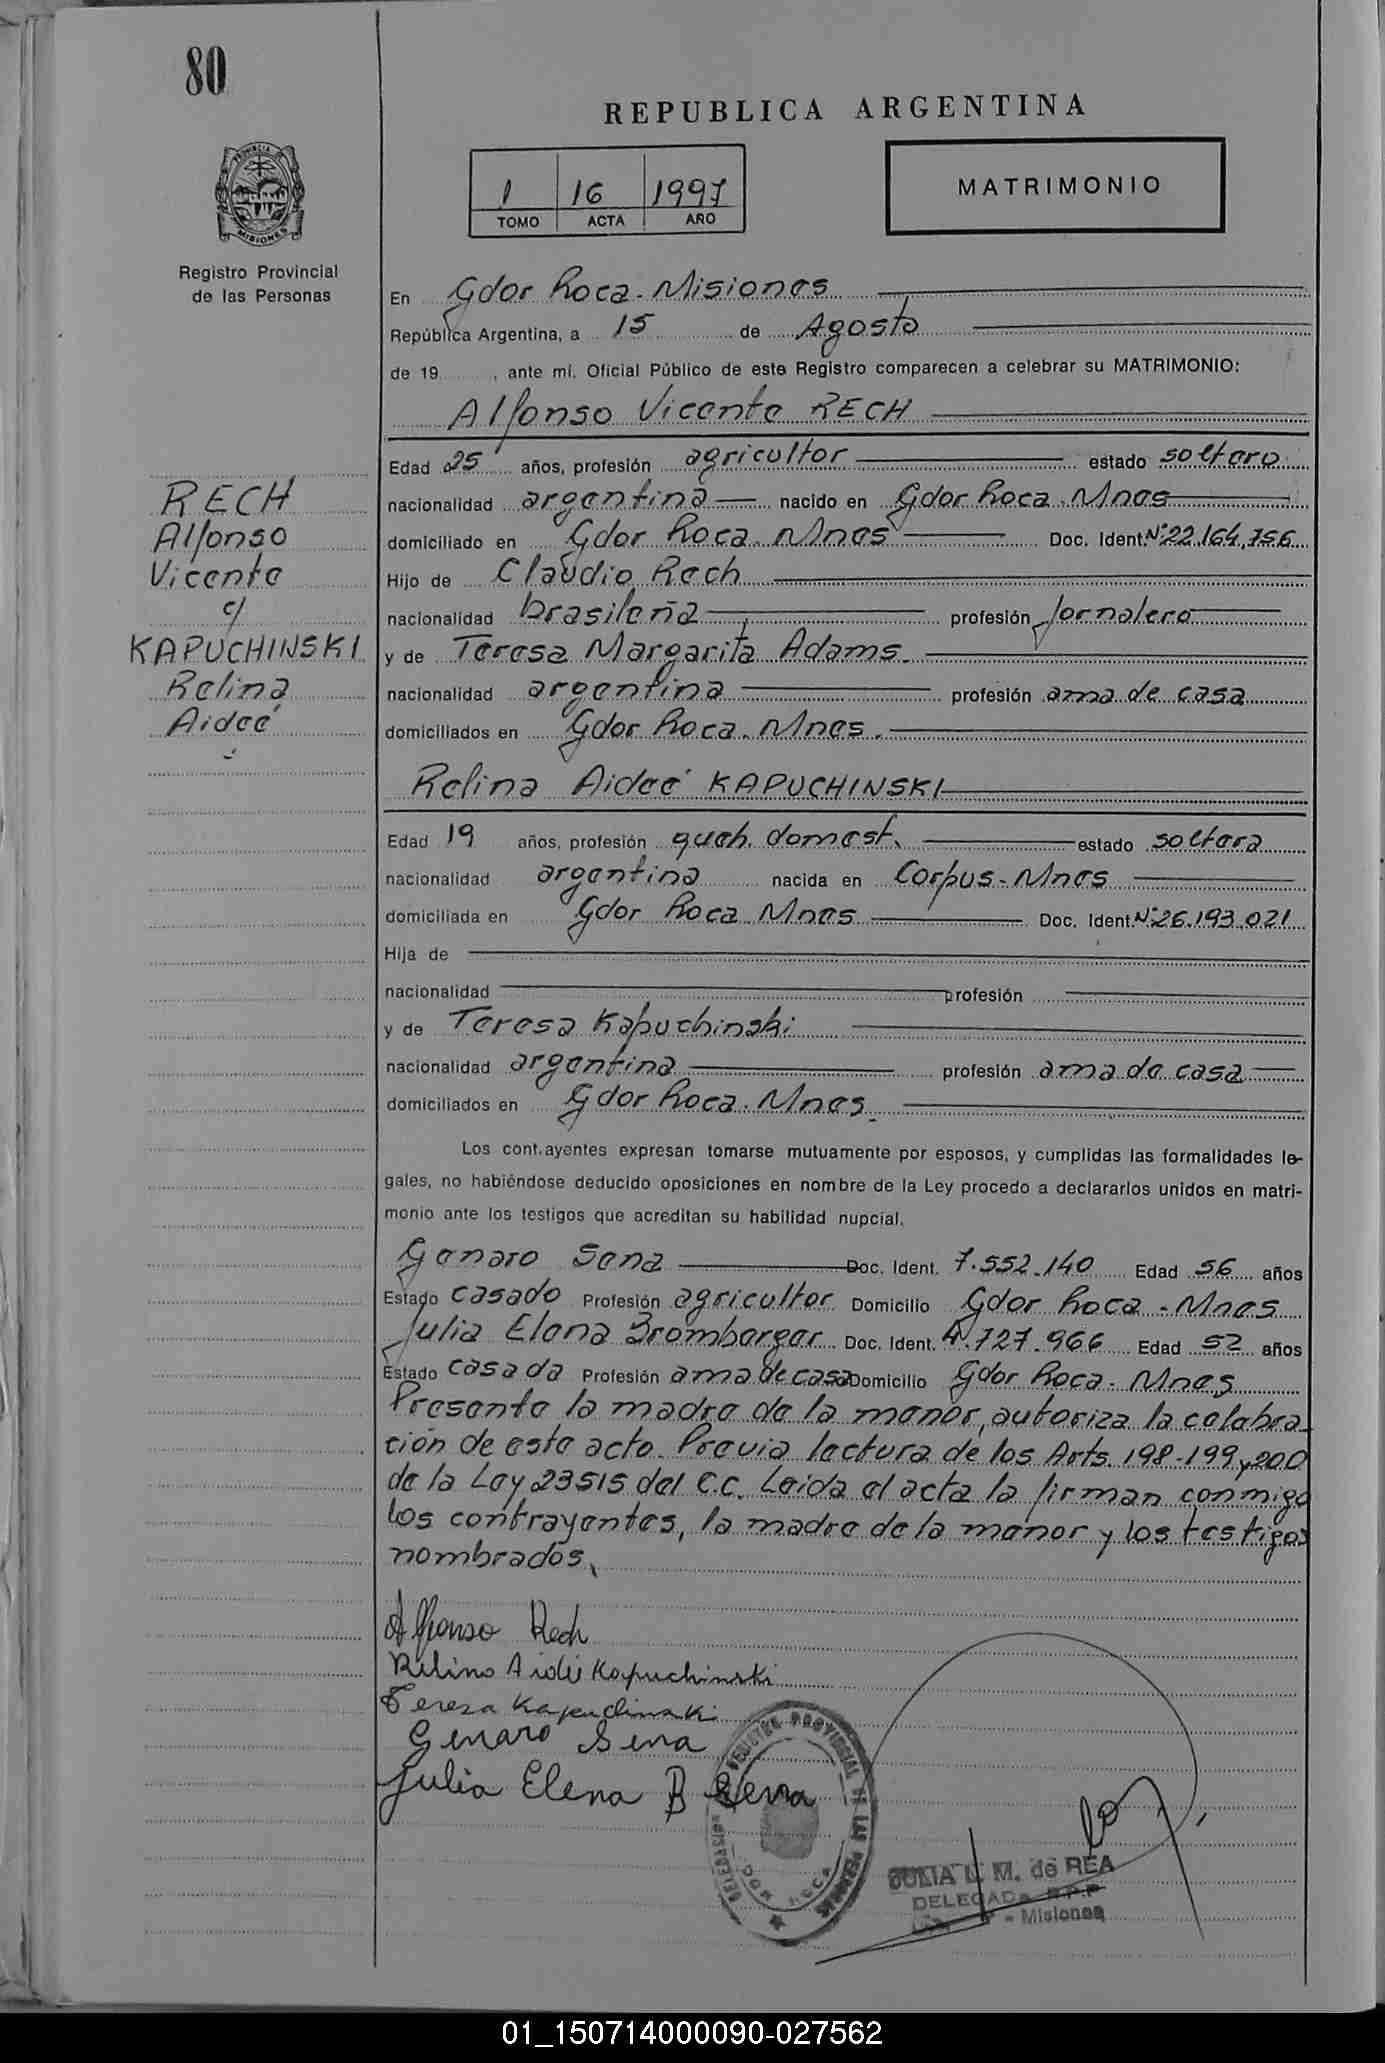 80
REPUBLICA ARGENTINA
1 16 1997
TOMO ACTA AÑO
MATRIMONIO
PROVINCIA
MISIONES
Registro Provincial
de las Personas
En Gdor Roca. Misiones
República Argentina, a 15 de Agosto
de 19 , ante mí, Oficial Público de este Registro comparecen a celebrar su MATRIMONIO:
Alfonso Vicente RECH
Edad 25 años, profesión agricultor estado soltero
nacionalidad argentina nacido en Gdor Roca. Mnes
domiciliado en Gdor Roca. Mnes Doc. Ident. Nº 22.164.756
Hijo de Claudio Rech
nacionalidad brasileña profesión Jornalero
y de Teresa Margarita Adams.
nacionalidad argentina profesión ama de casa
domiciliados en Gdor Roca. Mnes.
RECH
Alfonso
Vicente
c/
KAPUCHINSKI
Relina
Aideé
Relina Aideé KAPUCHINSKI
Edad 19 años, profesión queh. domest. estado soltera
nacionalidad argentina nacida en Corpus - Mnes
domiciliada en Gdor Roca Mnes Doc. Ident. Nº 26.193.021
Hija de
nacionalidad profesión
y de Teresa Kapuchinski
nacionalidad argentina profesión ama de casa
domiciliados en Gdor Roca. Mnes.
Los cont.ayentes expresan tomarse mutuamente por esposos, y cumplidas las formalidades le-
gales, no habiéndose deducido oposiciones en nombre de la Ley procedo a declararlos unidos en matri-
monio ante los testigos que acreditan su habilidad nupcial.
Genaro Sena Doc. Ident. 7.552.140 Edad 56 años
Estado casado Profesión agricultor Domicilio Gdor Roca - Mnes
Julia Elena Bromberger Doc. Ident. 4.727.966 Edad 52 años
Estado casada Profesión ama de casa Domicilio Gdor Roca. Mnes
Presente la madre de la menor, autoriza la celebra-
ción de este acto. Previa lectura de los Arts. 198-199 y 200
de la Ley 23515 del C.C. Leida el acta la firman conmigo
los contrayentes, la madre de la menor y los testigos
nombrados.
Alfonso Rech
Relina Aideé Kapuchinski
Teresa Kapuchinski
Genaro Sena
Julia Elena B Sena
REGISTRO PROVINCIAL DE LAS PERSONAS
GDOR ROCA
JULIA L. M. de REA
DELEGADA R.P.P
- Misiones
01_150714000090-027562